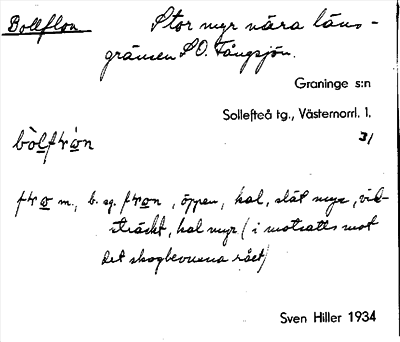 Bollflon Stor myr nära läns-
gränsen SO. Fångsjön.
Graninge s:n
Sollefteå tg., Västernorrl. l.
3/
bòlfròn
fro m., b. sg. fron, öppen, kal, slät myr, vid-
sträckt, kal myr (i motsatts mot
det skogbevuxna rået)
Sven Hiller 1934